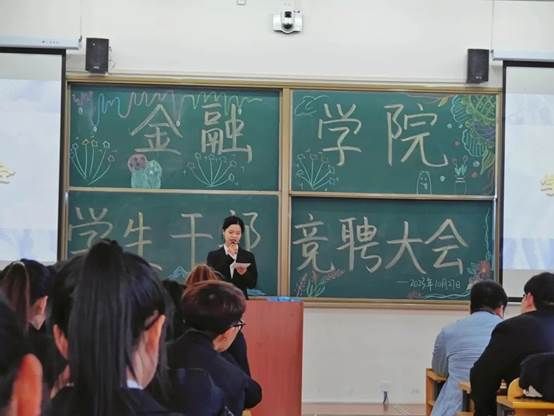 金融学院
学生干部竞聘大会
2025年10月27日